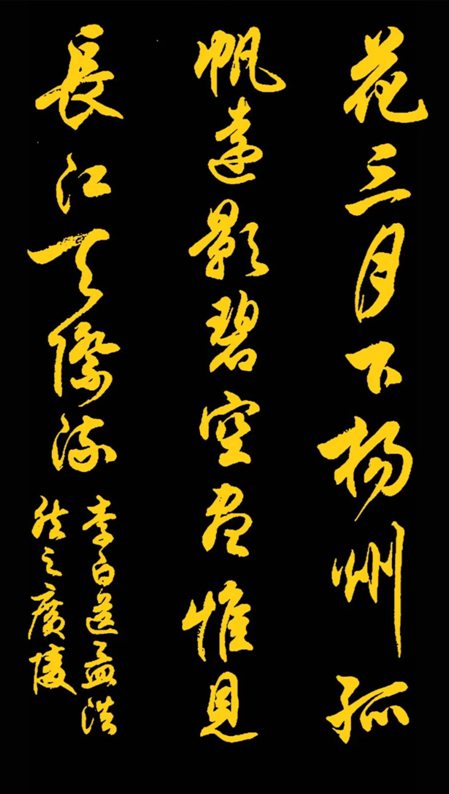 花三月下扬州孤
帆远影碧空尽惟见
長江天際流
李白送孟浩
然之廣陵